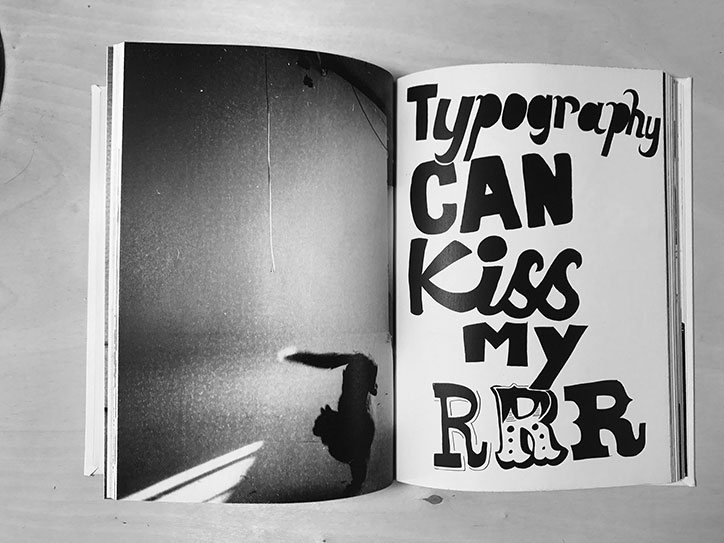 Typography
CAN
Kiss
My
RRR